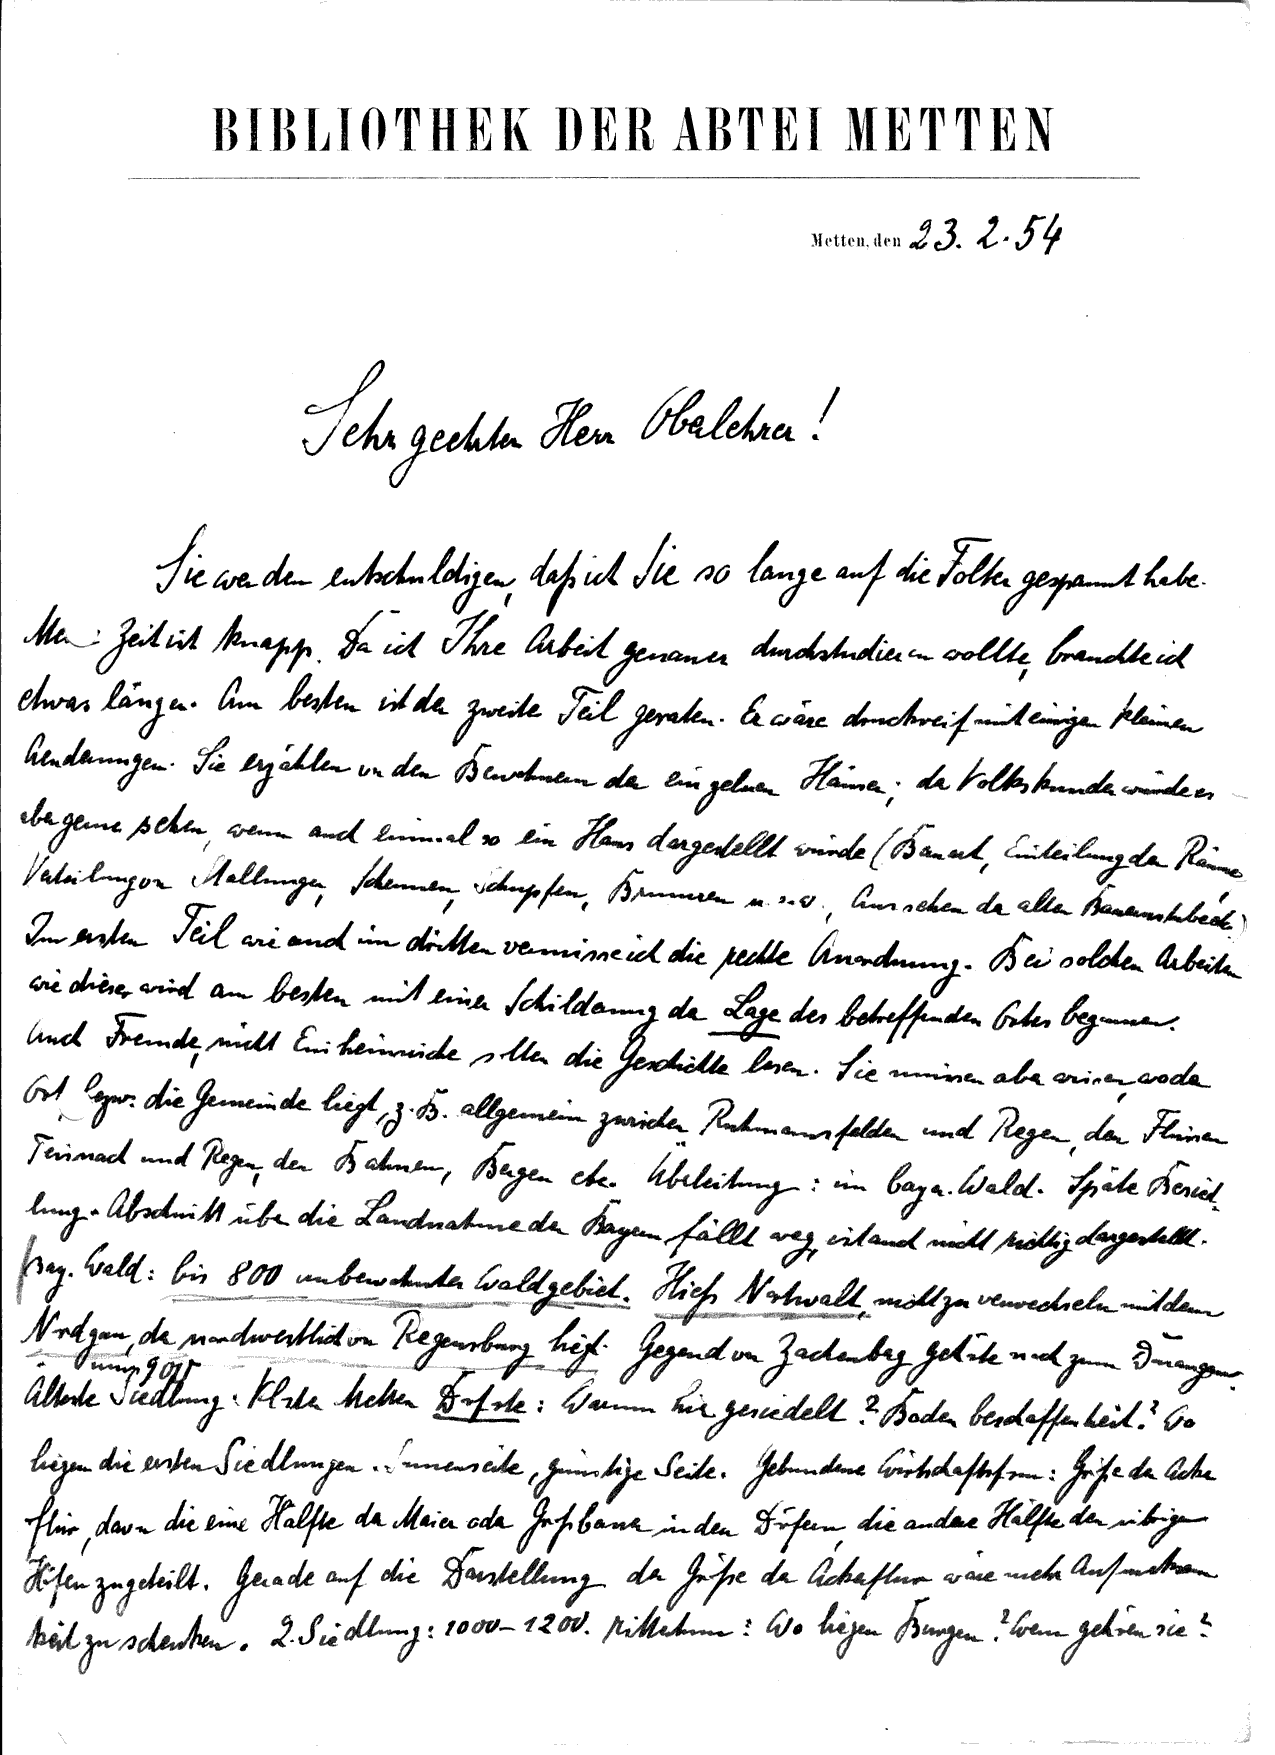 BIBLIOTHEK DER ABTEI METTEN
Metten, den 23. 2. 54
Sehr geehrter Herr Oberlehrer!
Sie werden entschuldigen, daß ich Sie so lange auf die Folter gespannt habe.
Meine Zeit ist knapp. Da ich Ihre Arbeit genauer durchstudieren wollte, brauchte ich
etwas länger. Am besten ist der zweite Teil geraten. Er wäre druckreif mit einigen kleinen
Aenderungen. Sie erzählen von den Bewohnern der einzelnen Häuser; der Volkskunder würde es
aber gerne sehen, wenn auch einmal so ein Haus dargestellt würde (Bauart, Einteilung der Räume,
Verteilung von Stallungen, Scheunen, Schupfen, Brunnen u.s.w., Aussehen der alten Bauernstube etc.)
Im ersten Teil wie auch im dritten vermisse ich die rechte Anordnung. Bei solchen Arbeiten
wie dieser wird am besten mit einer Schilderung der Lage des betreffenden Ortes begonnen.
Auch Fremde, nicht Einheimische sollen die Geschichte lesen. Sie müssen aber wissen, wo der
Ort bezw. die Gemeinde liegt, z.B. allgemein zwischen Ruhmannsfelden und Regen, den Flüssen
Teisnach und Regen, den Bahnen, Bergen etc. Überleitung: im bayer. Wald. Späte Besied-
lung. Abschnitt über die Landnahme der Bayern fällt weg, ist auch nicht richtig dargestellt.
Bay. Wald: bis 800 unbewohntes Waldgebiet. Hieß Nortwalt, nicht zu verwechseln mit dem
Nordgau, der nordwestlich von Regensburg liegt. Gegend von Zachenberg gehörte noch zum Donaugau.
um 905
Älteste Siedlung: Kloster Metten Dörfer: Warum hier gesiedelt? Bodenbeschaffenheit? Wo
liegen die ersten Siedlungen. Sonnenseite, günstige Seite. Gebundene Wirtschaftsform: Größe der Acker
flur, davon die eine Hälfte der Maier oder Großbauer in den Dörfern, die andere Hälfte den übrigen
Höfen zugeteilt. Gerade auf die Darstellung der Größe der Ackerflur wäre mehr Aufmerksam
keit zu schenken. 2. Siedlung: 1000–1200. Rittertum: Wo liegen Burgen? Wem gehören sie?